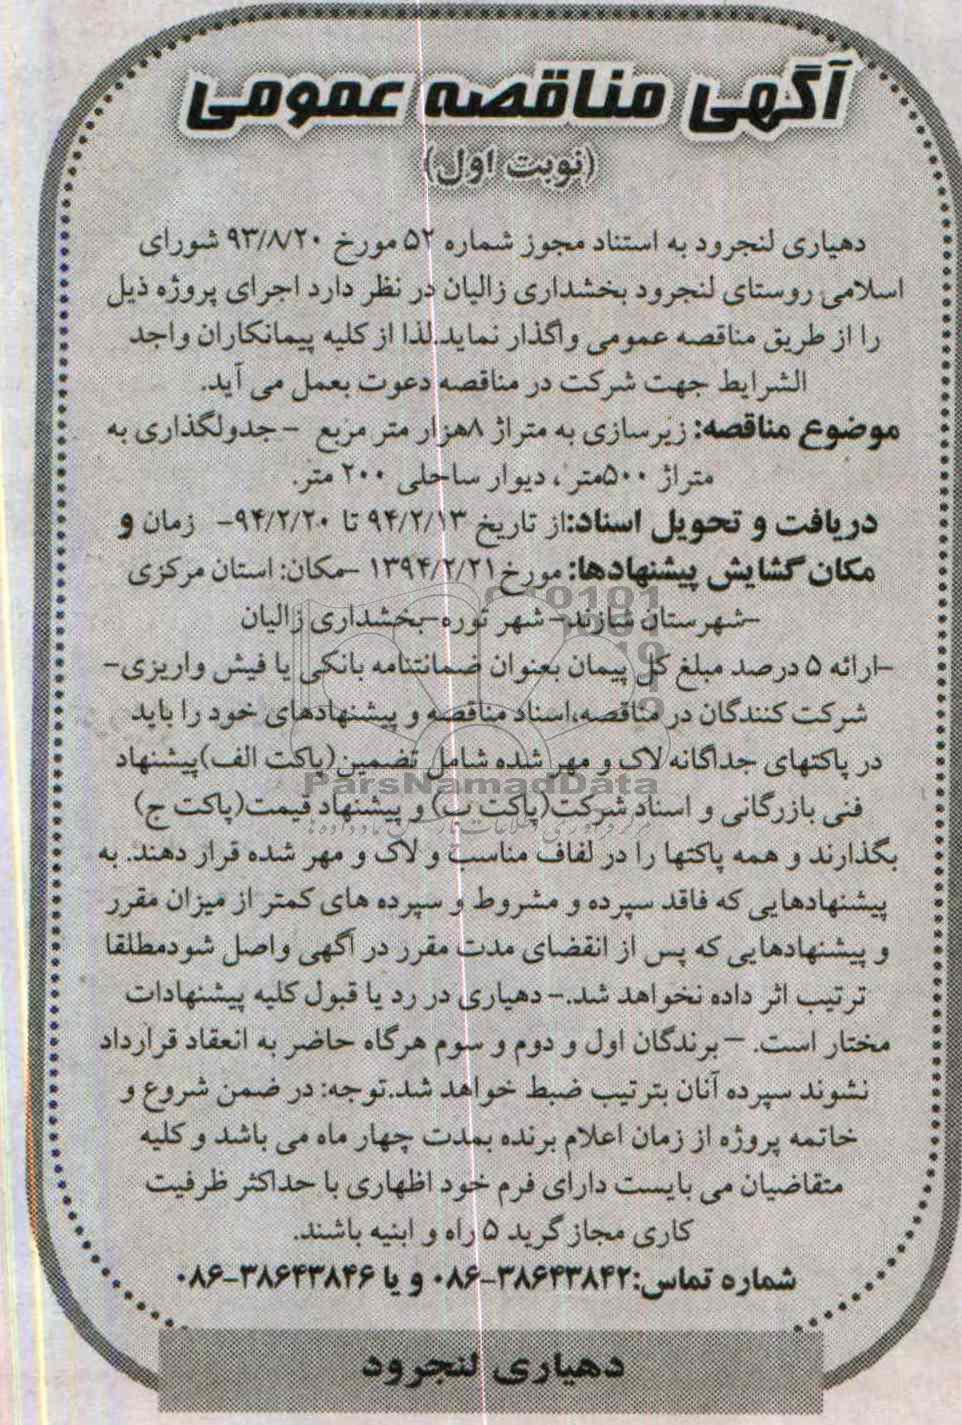 آگهی مناقصه عمومی
(نوبت اول)
دهیاری لنجرود به استناد مجوز شماره ۵۲ مورخ ۹۳/۸/۲۰ شورای
اسلامی روستای لنجرود بخشداری زالیان در نظر دارد اجرای پروژه ذیل
را از طریق مناقصه عمومی واگذار نماید.لذا از کلیه پیمانکاران واجد
الشرایط جهت شرکت در مناقصه دعوت بعمل می آید.
موضوع مناقصه: زیرسازی به متراژ ۸هزار متر مربع - جدولگذاری به
متراژ ۵۰۰متر ، دیوار ساحلی ۲۰۰ متر.
دریافت و تحویل اسناد:از تاریخ ۹۴/۲/۱۳ تا ۹۴/۲/۲۰- زمان و
مکان گشایش پیشنهادها: مورخ ۱۳۹۴/۲/۲۱ -مکان: استان مرکزی
-شهرستان شازند- شهر توره-بخشداری زالیان
-ارائه ۵ درصد مبلغ کل پیمان بعنوان ضمانتنامه بانکی یا فیش واریزی-
شرکت کنندگان در مناقصه،اسناد مناقصه و پیشنهادهای خود را باید
در پاکتهای جداگانه لاک و مهر شده شامل تضمین(پاکت الف)پیشنهاد
ParsNamadData
فنی بازرگانی و اسناد شرکت(پاکت ب) و پیشنهاد قیمت(پاکت ج)
بگذارند و همه پاکتها را در لفاف مناسب و لاک و مهر شده قرار دهند. به
پیشنهادهایی که فاقد سپرده و مشروط و سپرده های کمتر از میزان مقرر
و پیشنهادهایی که پس از انقضای مدت مقرر در آگهی واصل شودمطلقا
ترتیب اثر داده نخواهد شد.- دهیاری در رد یا قبول کلیه پیشنهادات
مختار است. - برندگان اول و دوم و سوم هرگاه حاضر به انعقاد قرارداد
نشوند سپرده آنان بترتیب ضبط خواهد شد.توجه: در ضمن شروع و
خاتمه پروژه از زمان اعلام برنده بمدت چهار ماه می باشد و کلیه
متقاضیان می بایست دارای فرم خود اظهاری با حداکثر ظرفیت
کاری مجاز گرید ۵ راه و ابنیه باشند.
شماره تماس:۳۸۶۴۳۸۴۲-۰۸۶ و یا ۳۸۶۴۳۸۴۶-۰۸۶
دهیاری لنجرود